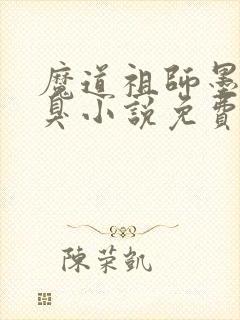 魔道祖師墨
臭小說免費
陳荣凱